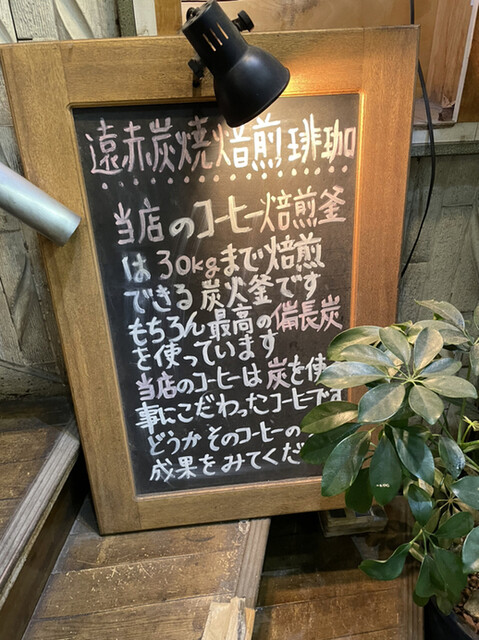 遠赤炭焼焙煎珈琲
当店のコーヒー焙煎釜
は30kgまで焙煎
できる炭火釜です
もちろん最高の備長炭
を使っています
当店のコーヒーは炭を使
事にこだわったコーヒーです
どうかそのコーヒーの
成果をみてくだ